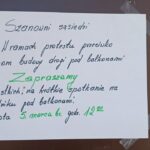 Szanowni sąsiedzi
W ramach protestu przeciwko
budowy drogi pod balkonami
Zapraszamy
na krótkie spotkanie na
pod balkonami
5 marca br. godz. 12